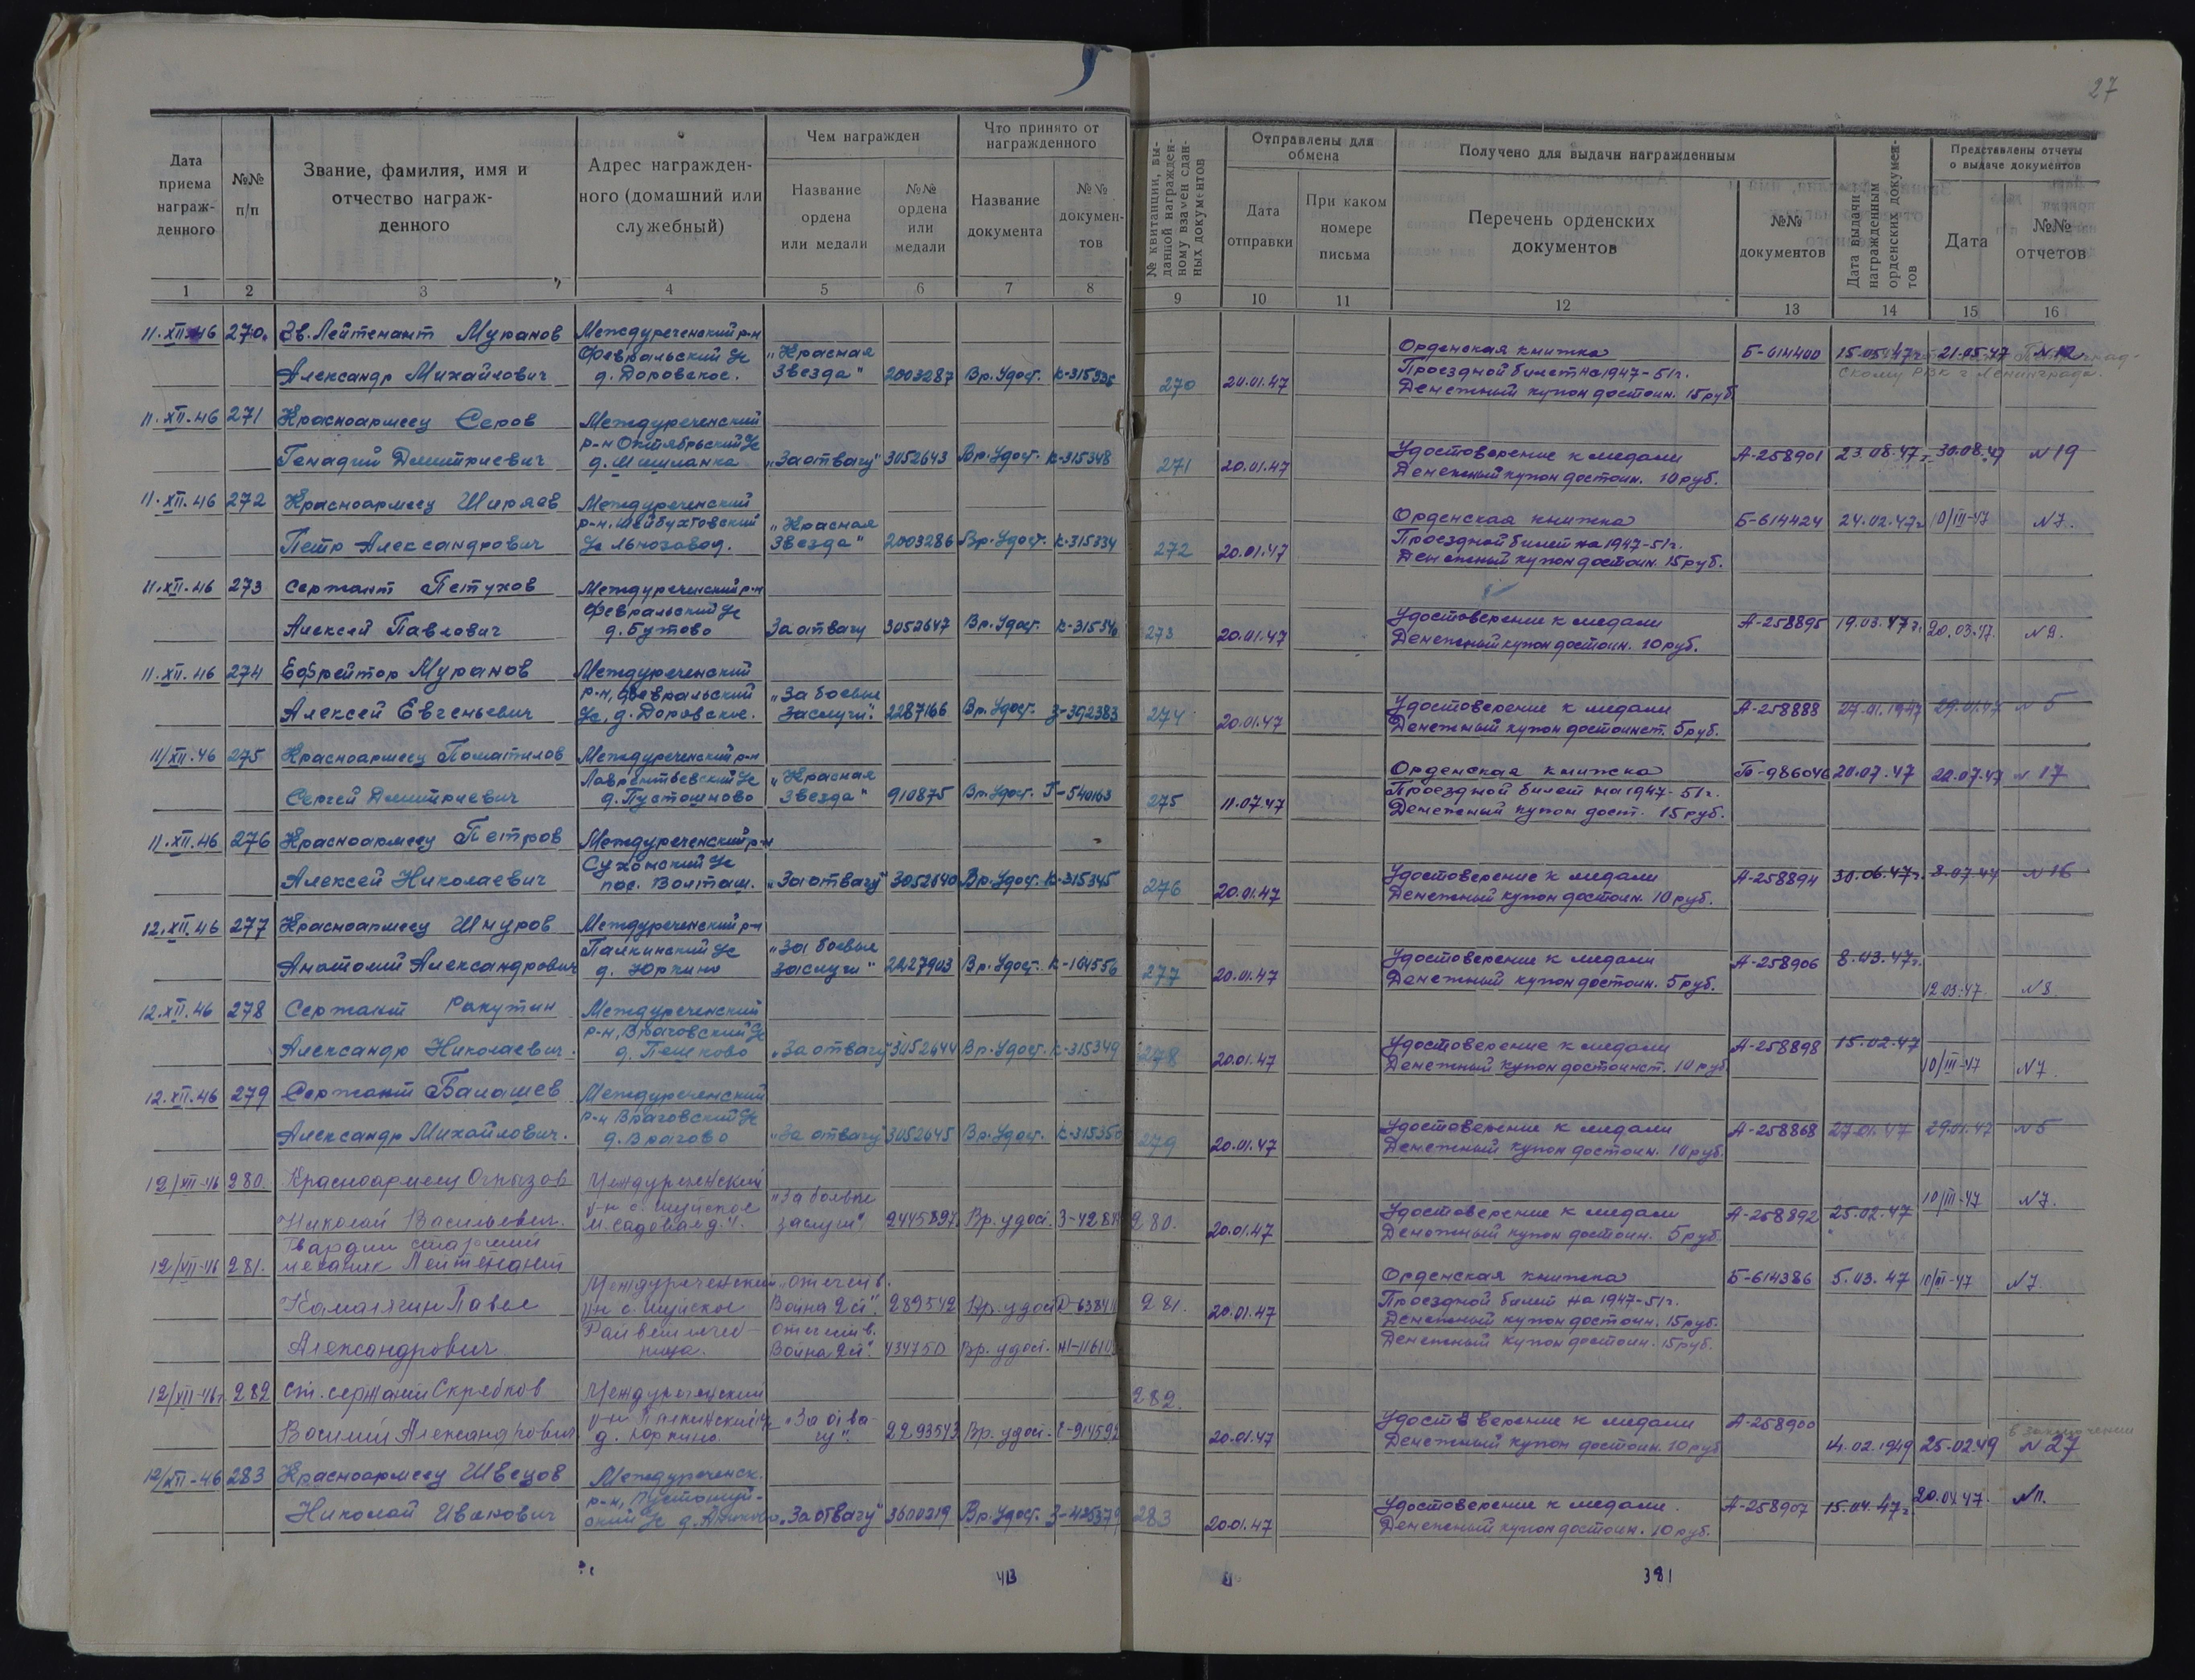 27
Дата приема награж-денного
№№ п/п
Звание, фамилия, имя и отчество награж-денного
Адрес награжден-ного (домашний или служебный)
Чем награжден
Название ордена или медали
№№ ордена или медали
Что принято от награжденного
Название документа
№№ докумен-тов
№ квитанции, вы-данной награжден-ному взамен сдан-ных документов
Отправлены для обмена
Дата отправки
При каком номере письма
Получено для выдачи награжденным
Перечень орденских документов
№№ документов
Дата выдачи награжденным орденских докумен-тов
Представлены отчеты о выдаче документов
Дата
№№ отчетов
1 2 3 4 5 6 7 8 9 10 11 12 13 14 15 16
11.XII.46 270. Зв. Лейтенант Муранов Междуреченский р-н
Февральский с/с "Красная Орденская книжка Б-614400 15.05.47г. 21.05.47 N 12
Александр Михайлович д. Доровское. Звезда" 2003287 Вр. Удост. К-315335 270 20.01.47 Проездной билет на 1947-51г.
скому РВК г. Ленинграда.
Денежный купон достоин. 15 руб.
11.XII.46 271 Красноармеец Серов Междуреченский
р-н Октябрьский с/с Удостоверение к медали А-258901 23.08.47г. 30.08.47 N 19
Генадий Дмитриевич д. Шишланка "За отвагу" 3052643 Вр. Удост. К-315348 271 20.01.47 Денежный купон достоин. 10 руб.
11.XII.46 272 Красноармеец Ширяев Междуреченский
р-н, Шейбухтовский "Красная Орденская книжка Б-614424 24.02.47г. 10/III-47 N7.
Петр Александрович с/с Льнозавод. Звезда" 2003286 Вр. Удост. К-315334 272 20.01.47 Проездной билет на 1947-51г.
Денежный купон достоин. 15 руб.
11.XII.46 273 Сержант Петухов Междуреченский р-н
Февральский с/с Удостоверение к медали А-258895 19.03.47г. 20.03.47. N 9.
Алексей Павлович д. Бутово За отвагу 3052647 Вр. Удост. К-315346 273 20.01.47 Денежный купон достоин. 10 руб.
11.XII.46 274 Ефрейтор Муранов Междуреченский
р-н, Февральский "За боевые Удостоверение к медали А-258888 27.01.1947 29.01.47 N 5
Алексей Евгеньевич с/с, д. Доровское. Заслуги". 2287166 Вр. Удост. З-392383 274 20.01.47 Денежный купон достоинст. 5 руб.
11/XII.46 275 Красноармеец Поматилов Междуреченский р-н
Лаврентьевский с/с "Красная Орденская книжка Б-986046 20.07.47 22.07.47 N 17
Сергей Дмитриевич д. Пустошново Звезда" 910875 Вр. Удост. Г-540163 275 11.07.47 Проездной билет на 1947-51г.
Денежный купон дост. 15 руб.
11.XII.46 276 Красноармеец Петров Междуреченский р-н
Сухонский с/с Удостоверение к медали А-258894 30.06.47г. 8.07.47 N 16
Алексей Николаевич пос. Волташ. "За отвагу" 3052640 Вр. Удост. К-315345 276 20.01.47 Денежный купон достоин. 10 руб.
12.XII.46 277 Красноармеец Шнуров Междуреченский р-н
Палкинский с/с "За боевые Удостоверение к медали А-258906 8.03.47г.
Анатолий Александрович д. Юркино Заслуги" 2227903 Вр. Удост. К-164556 277 20.01.47 Денежный купон достоин. 5 руб. 12.03.47. N 8.
12.XII.46 278 Сержант Ракутин Междуреченский
р-н, Враговский с/с Удостоверение к медали А-258898 15.02.47
Александр Николаевич. д. Пешково "За отвагу" 3052644 Вр. Удост. К-315349 278 20.01.47 Денежный купон достоинст. 10 руб 10/III-47 N7.
12.XII.46 279 Сержант Балашев Междуреченский
р-н Враговский с/с Удостоверение к медали А-258868 27.01.47 29.01.47 N 5
Александр Михайлович. д. Врагово "За отвагу" 3052645 Вр. Удост. К-315350 279 20.01.47 Денежный купон достоин. 10 руб.
12/XII-46 280. Красноармеец Огнызов Междуреченский 10/III-47 N7.
р-н с. Шуйское "За боевые Удостоверение к медали А-258892 25.02.47
Николай Васильевич. ул. Садовая д. 4. заслуги" 2445897 Вр. удост. З-4288 280. 20.01.47 Денежный купон достоин. 5 руб.
Гвардии старший
12/XII-46 281. механик Лейтенант Междуреченский "Отечеств. Орденская книжка Б-614386 5.03.47 10/III-47 N7.
Камалягин Павел р-н с. Шуйское Война 2 ст". 289542 Вр. удост. 281. 20.01.47 Проездной билет на 1947-51г.
Райветлечеб- Отечеств. Денежный купон достоин. 15 руб.
Александрович. ница. Война 2 ст". 434750 Вр. удост. Денежный купон достоин. 15 руб.
12/XII-46г 282 ст. сержант Скрябков Междуреченский 282.
р-н Палкинский с/с "За отва- Удостоверение к медали А-258900 в заключении
Василий Александрович д. Юркино. гу". 2293543 Вр. удост. 20.01.47 Денежный купон достоин. 10 руб 14.02.1949 25.02.49 N 27
12/XII-46 283 Красноармеец Швецов Междуреченск.
р-н, Пустошуй- Удостоверение к медали. А-258907 15.04.47г. 20.04.47. N11.
Николай Иванович ский с/с "За отвагу" 3600219 Вр. Удост. 283 20.01.47 Денежный купон достоин. 10 руб.
413 381